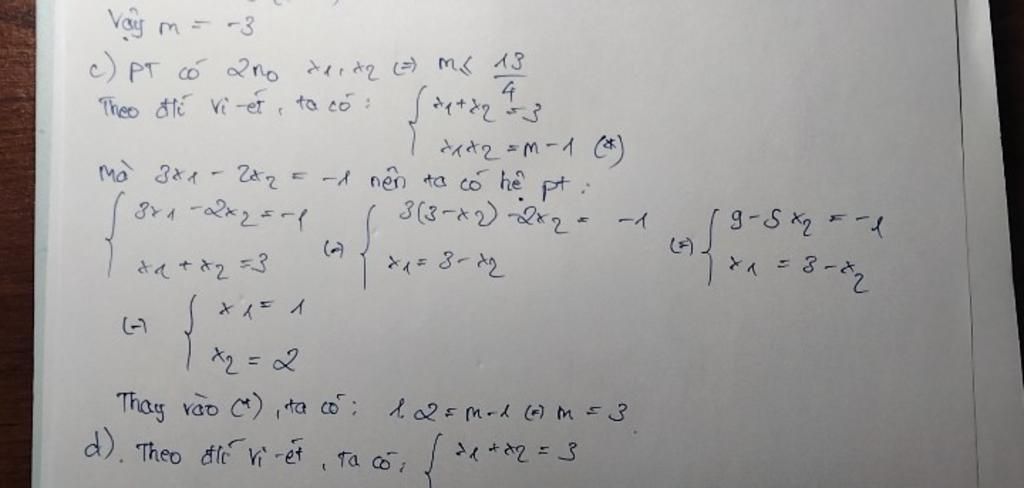 Vậy m = -3
c) PT có 2 n0 x1, x2 (=) m ≤ 13/4
Theo đlí Vi-ét, ta có: { x1 + x2 = 3
x1x2 = m - 1 (*)
Mà 3x1 - 2x2 = -1 nên ta có hệ pt:
{ 3x1 - 2x2 = -1 (=) { 3(3 - x2) - 2x2 = -1 (=) { 9 - 5x2 = -1
x1 + x2 = 3 x1 = 3 - x2 x1 = 3 - x2
(=) { x1 = 1
x2 = 2
Thay vào (*), ta có: 1.2 = m - 1 (=) m = 3.
d). Theo đlí Vi-ét, ta có: { x1 + x2 = 3